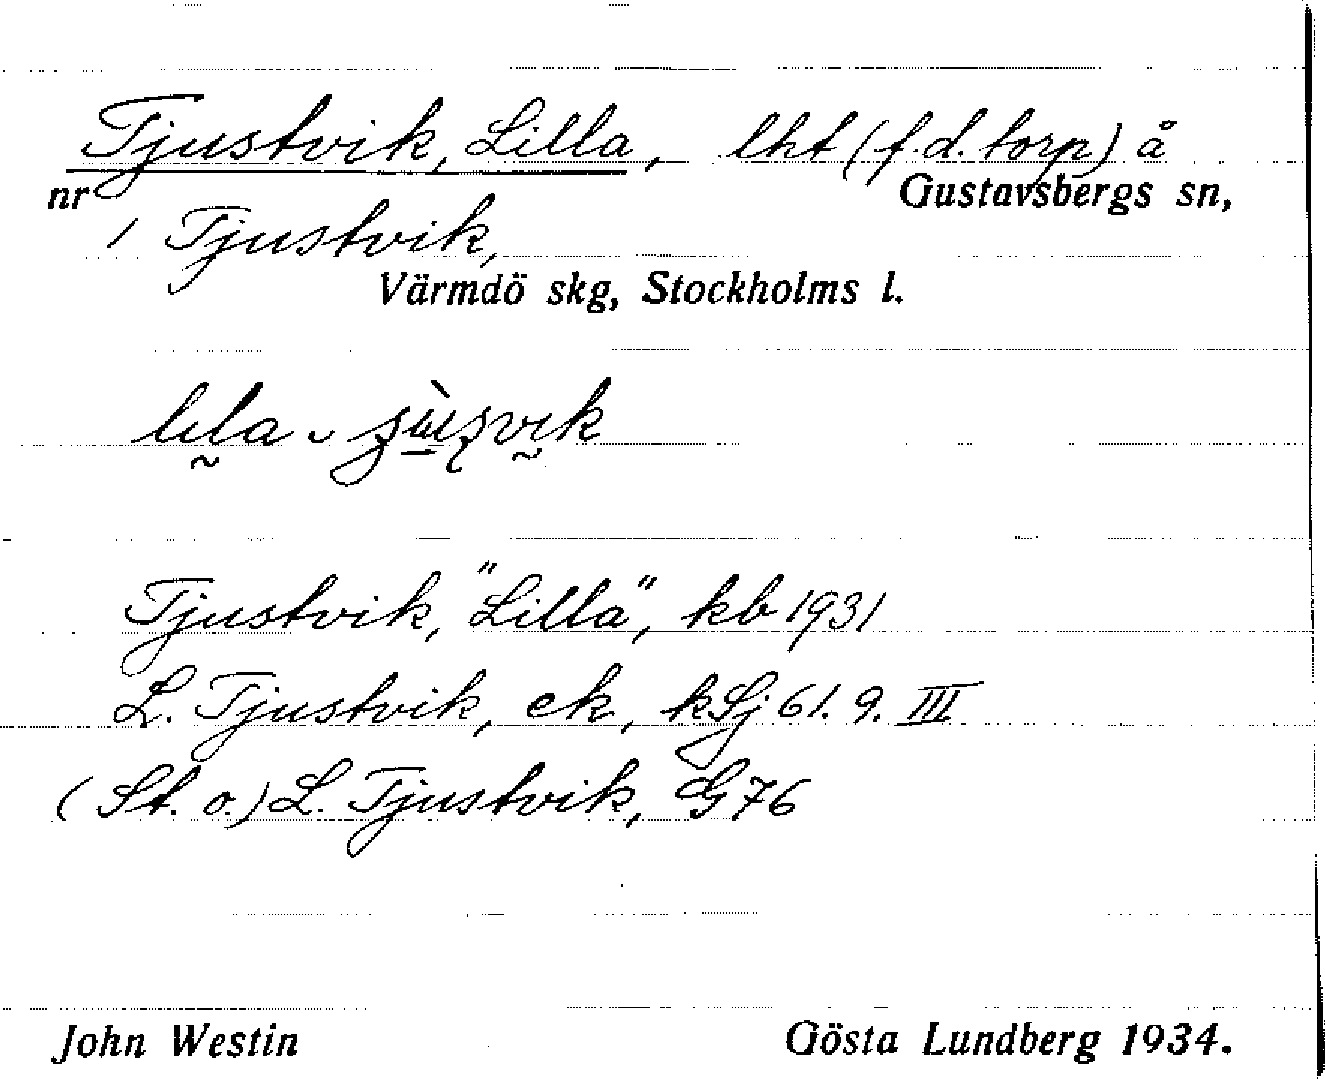 Tjustvik, Lilla, lht (f.d. torp) å
nr Gustavsbergs sn,
1 Tjustvik,
Värmdö skg, Stockholms l.
Tjustvik, "Lilla", kb 1931
L. Tjustvik, ek, kSj 61. 9. III
(St. o.) L. Tjustvik, G76
John Westin Gösta Lundberg 1934.